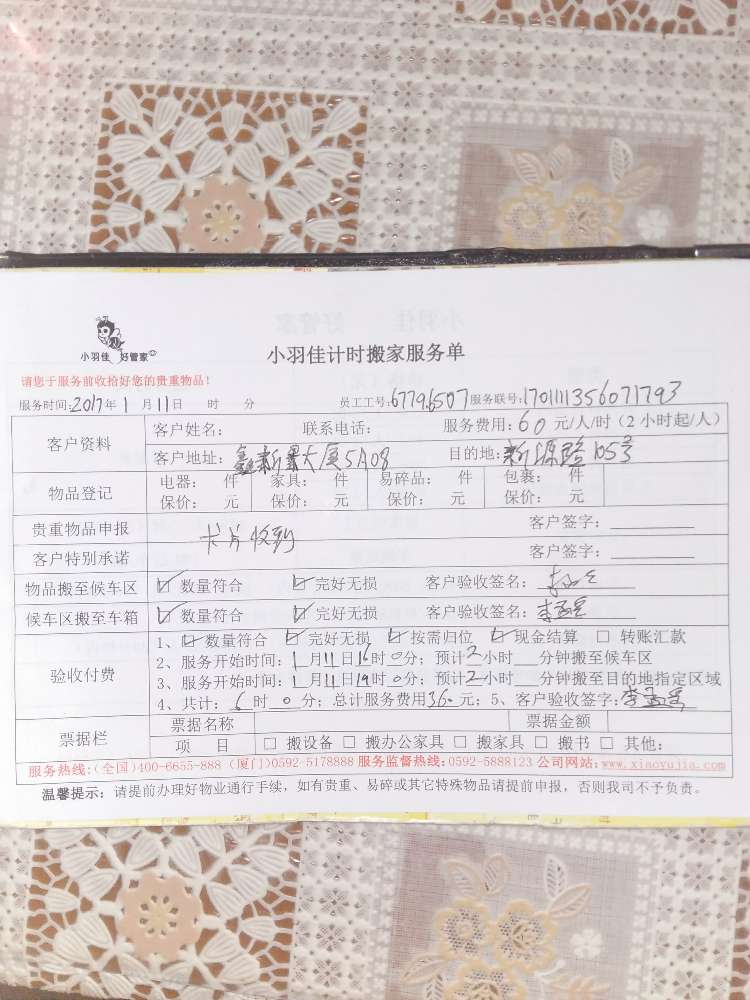 小羽佳 好管家
小羽佳计时搬家服务单
请您于服务前收拾好您的贵重物品!
服务时间:2017年1月11日 时 分 员工工号:67796507 服务联号:1701111356071793
客户资料
客户姓名: 联系电话: 服务费用:60元/人/时(2小时起/人)
客户地址:鑫新景大厦5A08 目的地:新源路105号
物品登记
电器: 件 家具: 件 易碎品: 件 包裹: 件
保价: 元 保价: 元 保价: 元 保价: 元
贵重物品申报 卡片收到 客户签字:
客户特别承诺 客户签字:
物品搬至候车区 ☑ 数量符合 ☑ 完好无损 客户验收签名:
候车区搬至车箱 ☑ 数量符合 ☑ 完好无损 客户验收签名:
验收付费
1、☑ 数量符合 ☑ 完好无损 ☑ 按需归位 ☑ 现金结算 □ 转账汇款
2、服务开始时间:1月11日16时0分;预计2小时__分钟搬至候车区
3、服务开始时间:1月11日19时0分;预计2小时__分钟搬至目的地指定区域
4、共计:6时0分;总计服务费用360元;5、客户验收签字:
票据栏
票据名称 票据金额
项 目 □ 搬设备 □ 搬办公家具 □ 搬家具 □ 搬书 □ 其他:
服务热线:(全国)400-6655-888 (厦门)0592-5178888 服务监督热线:0592-5888123 公司网站:www.xiaoyujia.com
温馨提示:请提前办理好物业通行手续,如有贵重、易碎或其它特殊物品请提前申报,否则我司不予负责。